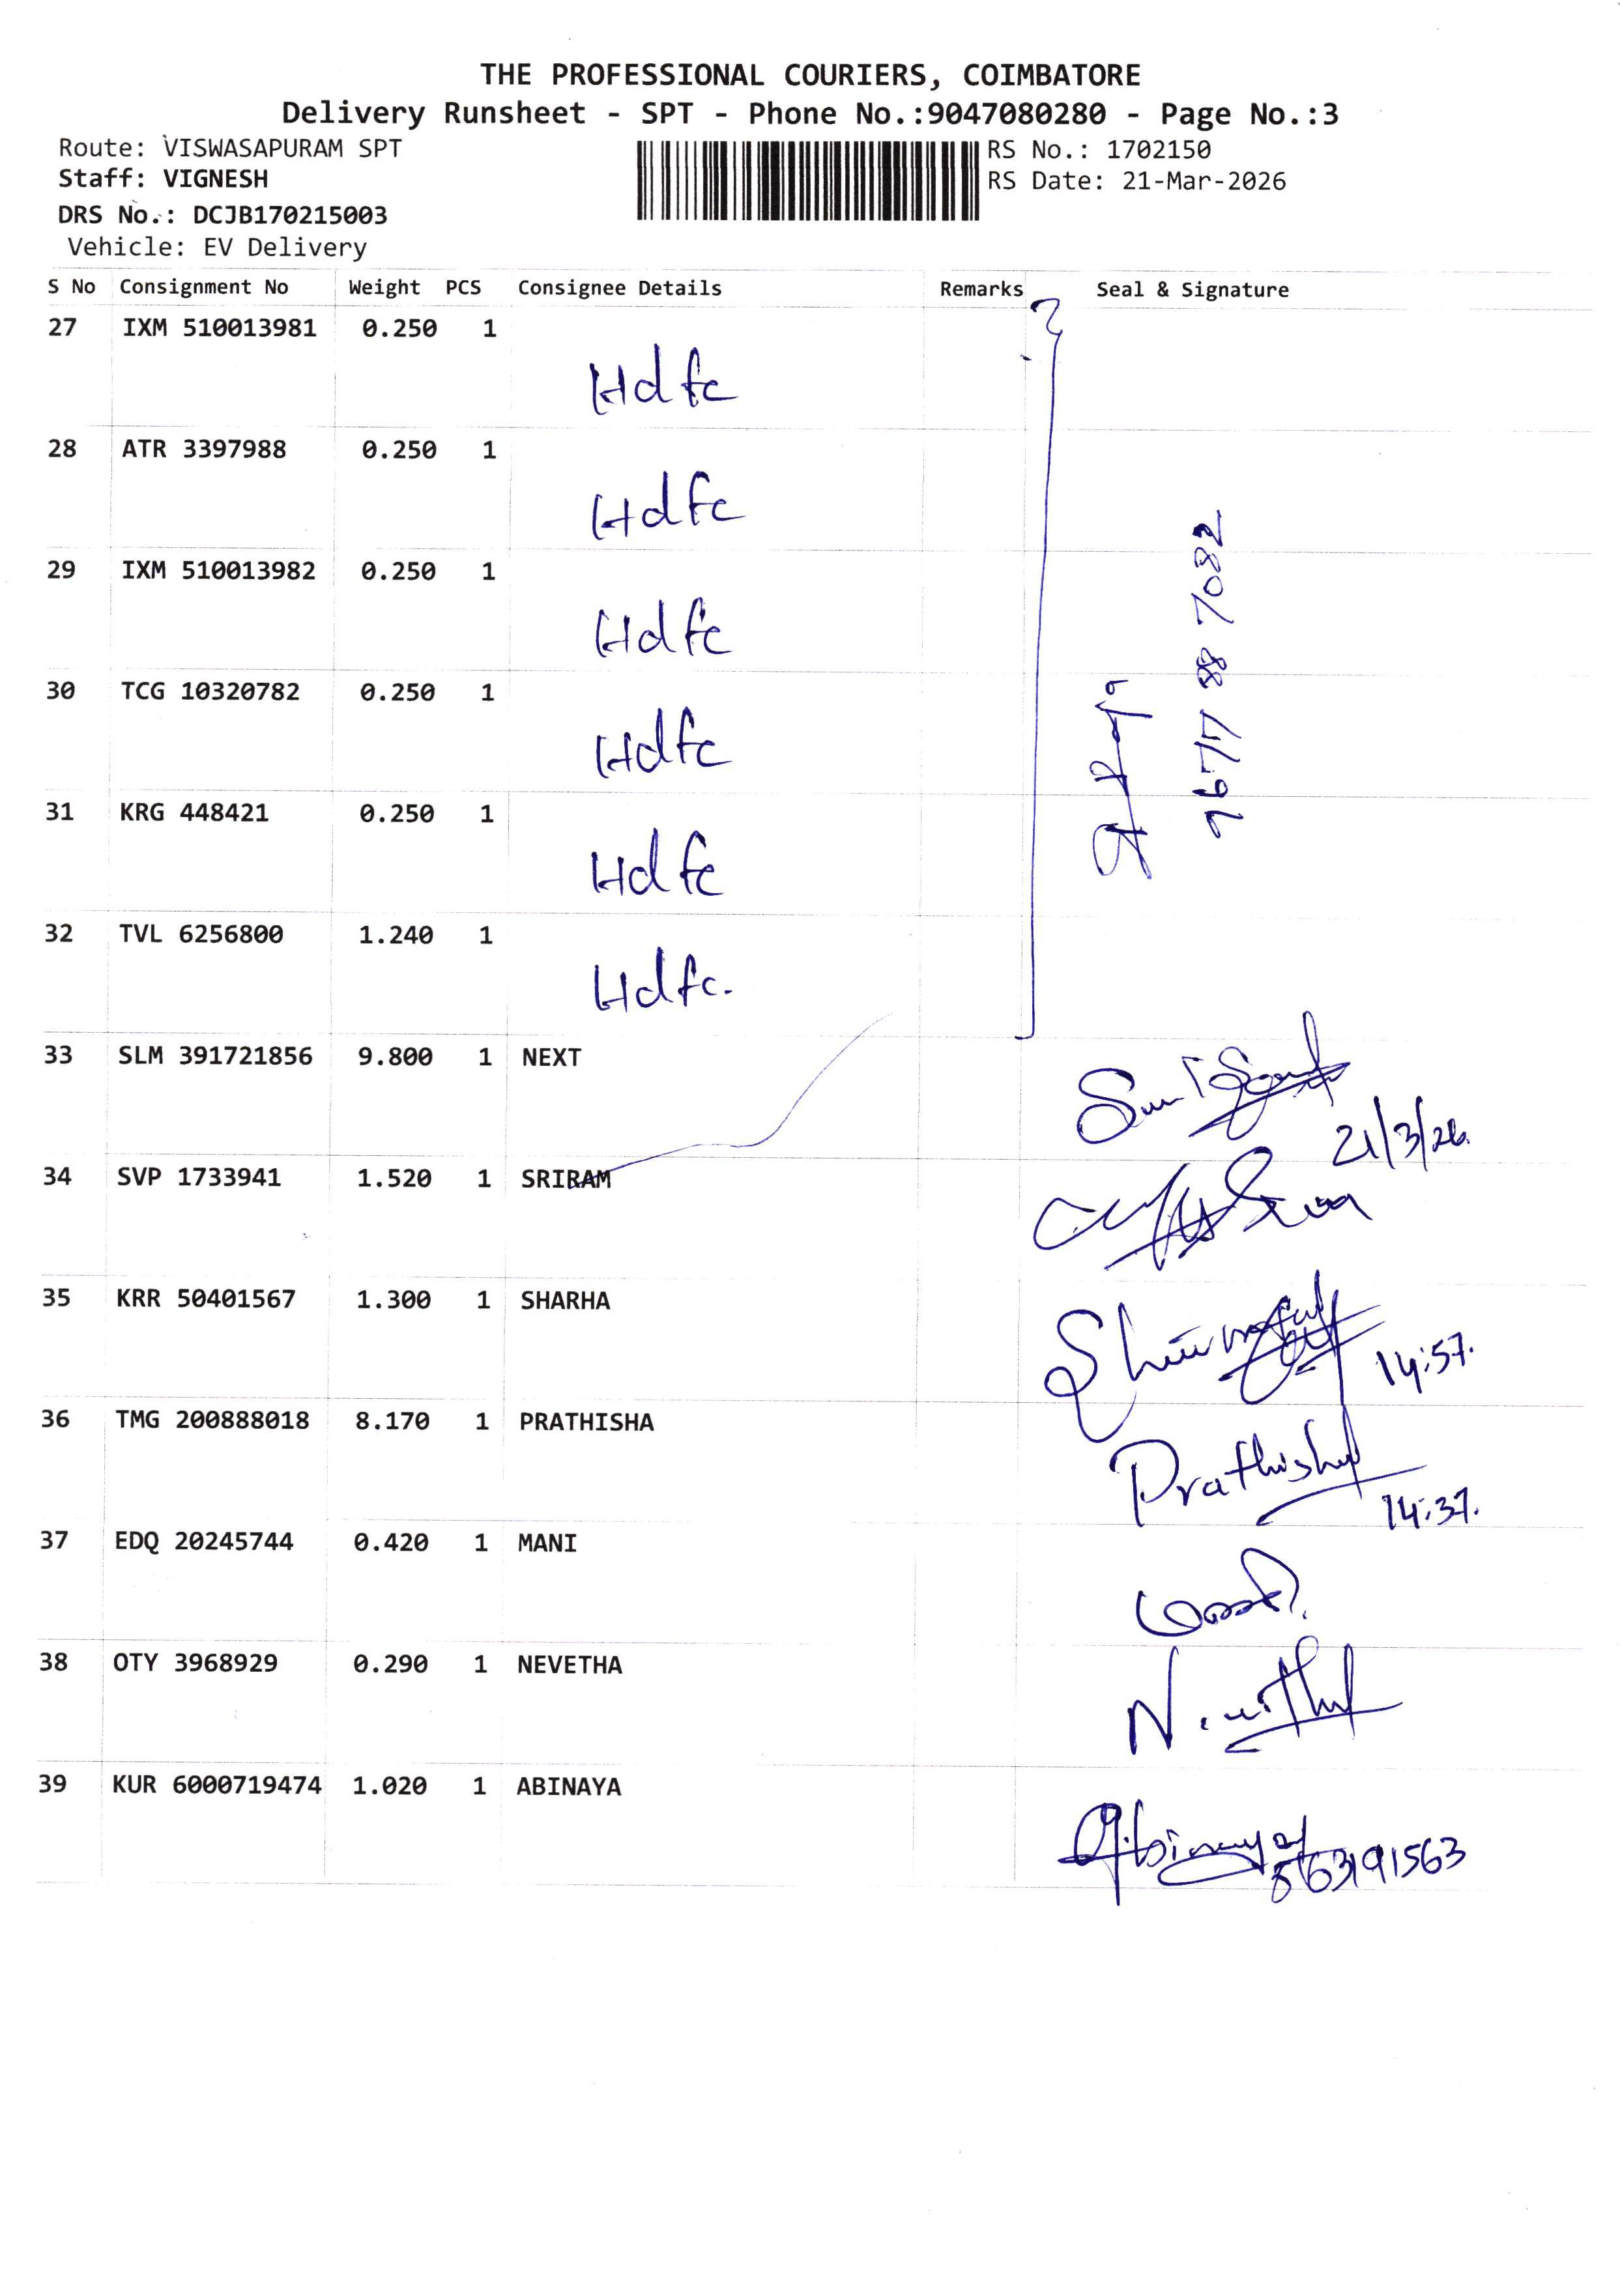 THE PROFESSIONAL COURIERS, COIMBATORE
Delivery Runsheet - SPT - Phone No.:9047080280 - Page No.:3
Route: VISWASAPURAM SPT
RS No.: 1702150
Staff: VIGNESH
RS Date: 21-Mar-2026
DRS No.: DCJB170215003
Vehicle: EV Delivery
S No Consignment No Weight PCS Consignee Details Remarks Seal & Signature
27 IXM 510013981 0.250 1
Hdfc
28 ATR 3397988 0.250 1
Hdfc
29 IXM 510013982 0.250 1
Hdfc
30 TCG 10320782 0.250 1
Hdfc
31 KRG 448421 0.250 1
Hdfc
32 TVL 6256800 1.240 1
Hdfc.
33 SLM 391721856 9.800 1 NEXT
21/3/26.
34 SVP 1733941 1.520 1 SRIRAM
35 KRR 50401567 1.300 1 SHARHA
14:57.
36 TMG 200888018 8.170 1 PRATHISHA
Prathisha
14:37.
37 EDQ 20245744 0.420 1 MANI
38 OTY 3968929 0.290 1 NEVETHA
39 KUR 6000719474 1.020 1 ABINAYA
Abinaya